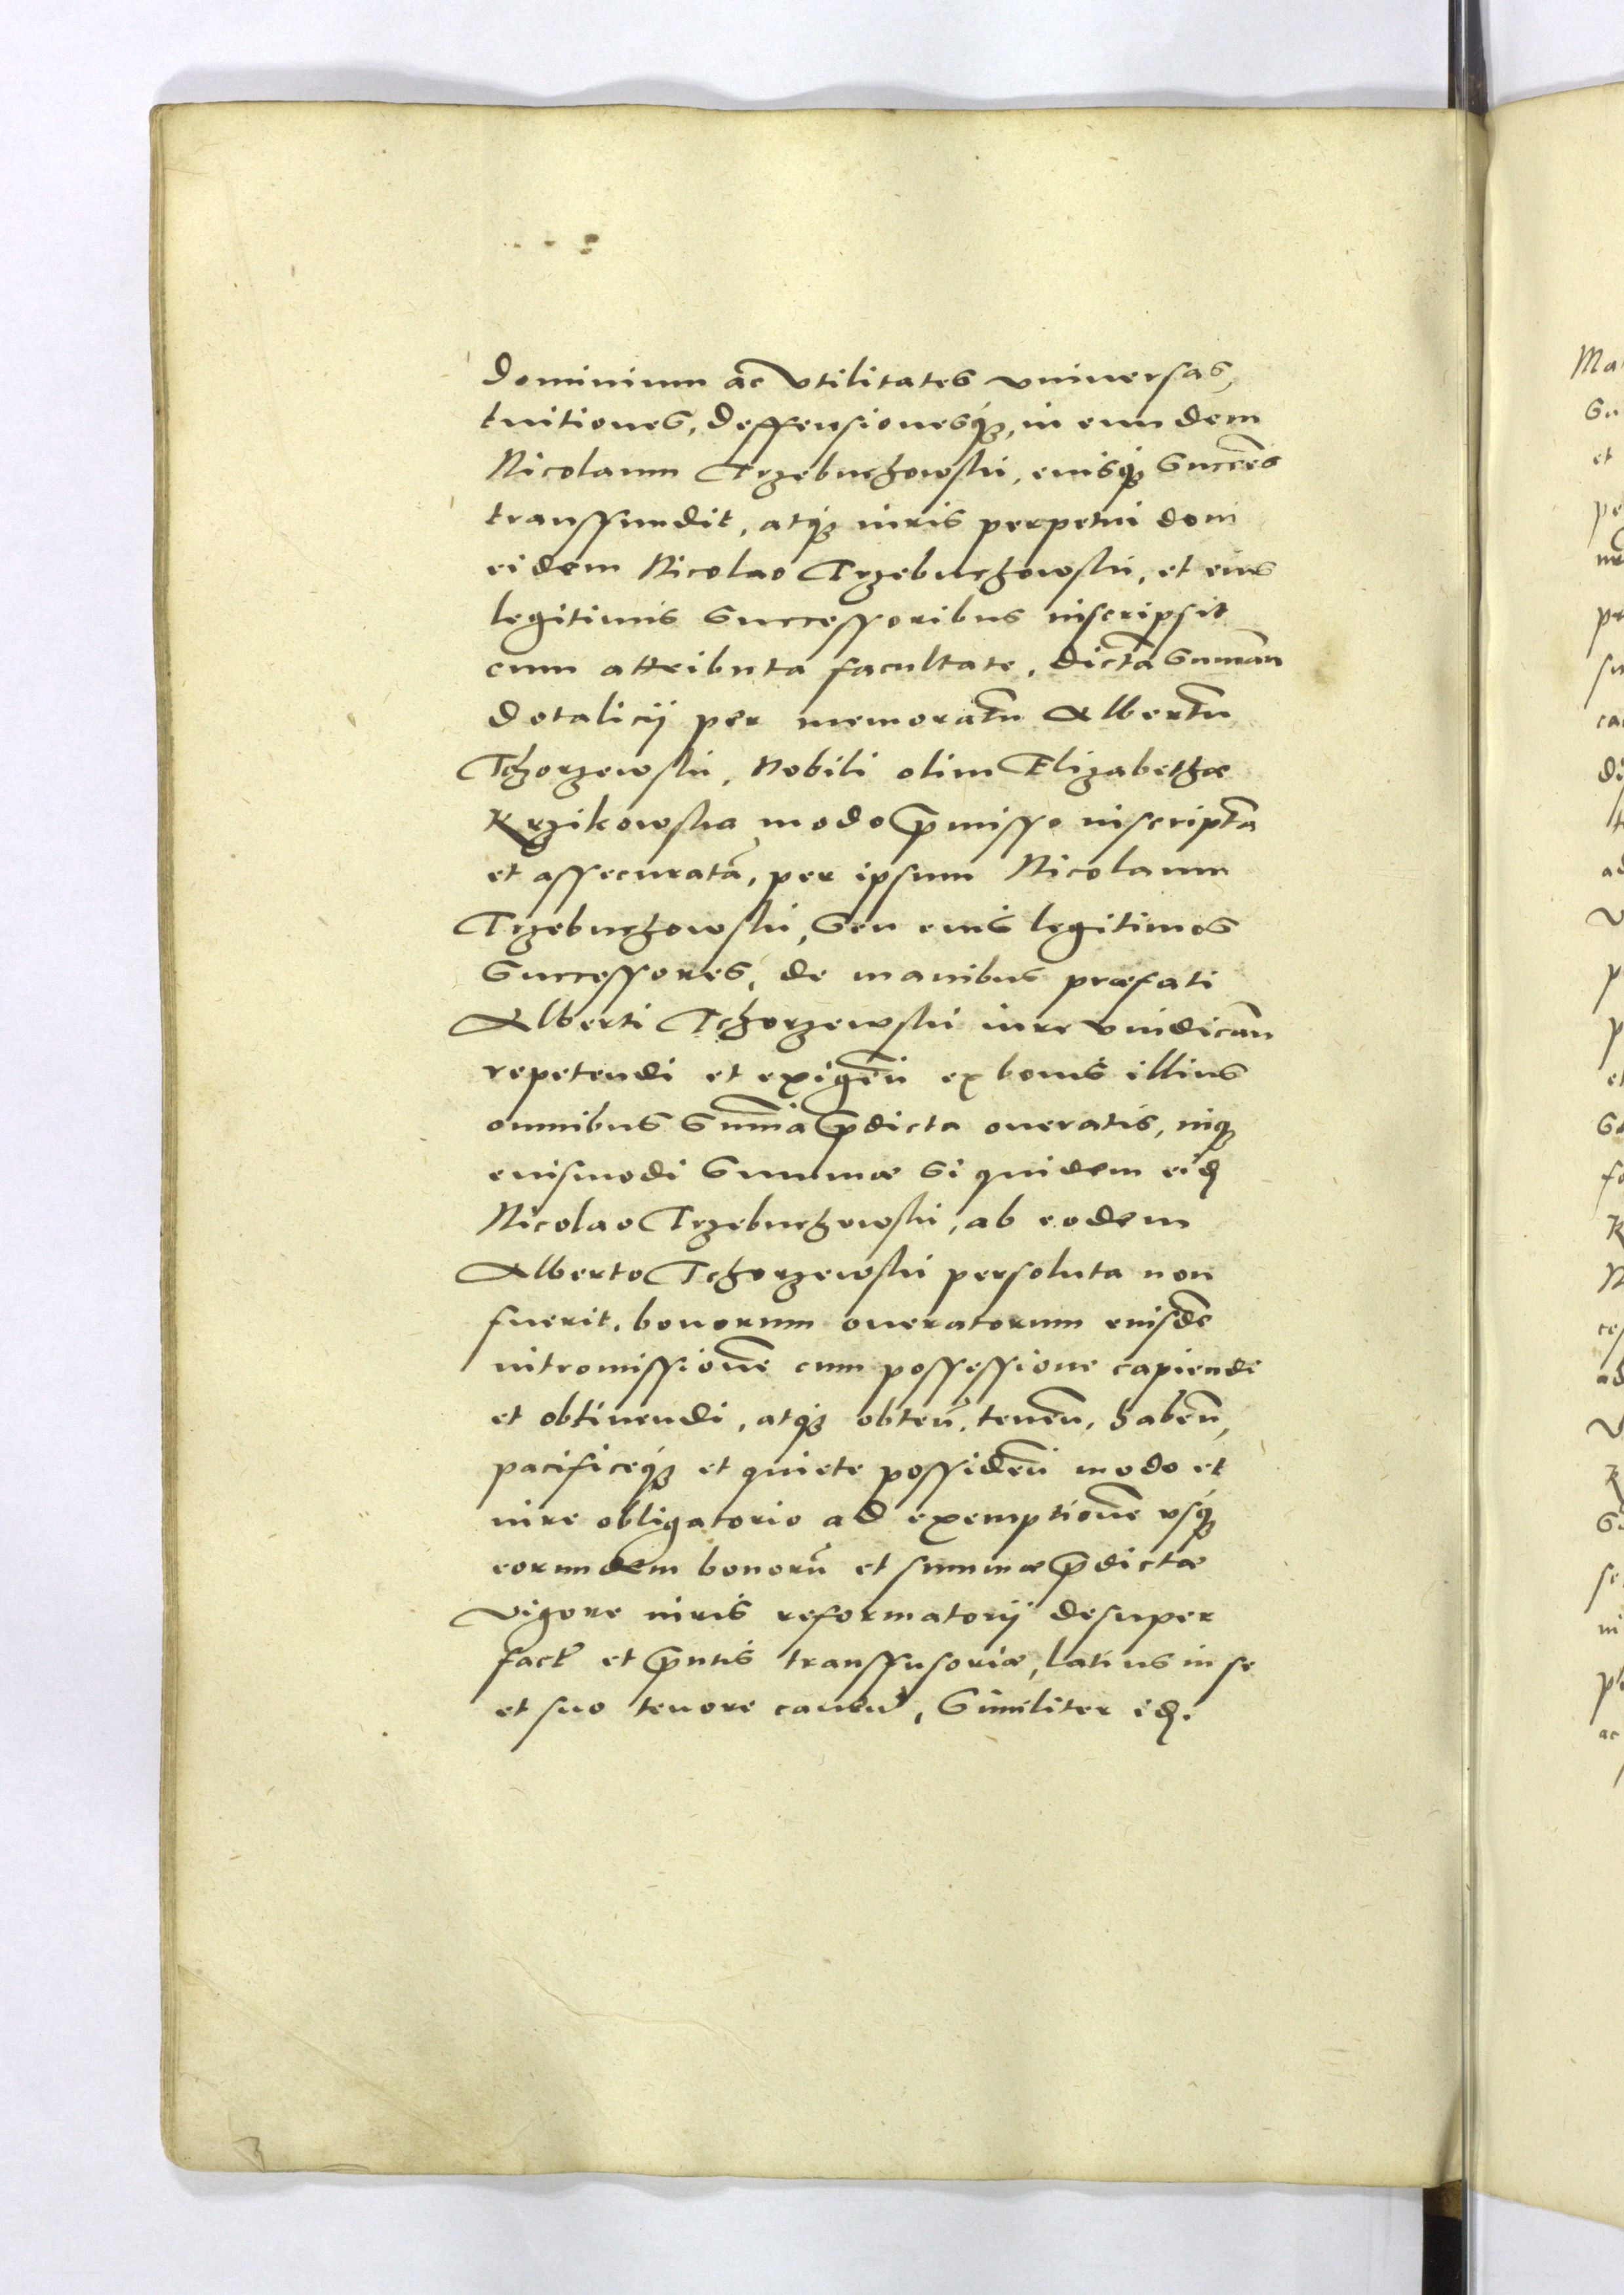 dominium ac vtilitates vniuersas,
tuitiones, deffensionesq́3, in eundem
Nicolaum Trzebuchowski, eiusq́3 succes̃
transfundit, atq́3 iuris perpetui dom
eidem Nicolao Trzebuchowski, et eius
legitimis successoribus inscripsit
cum attributa facultate, dictã sum̃am
dotalicij per memoratũ Albertũ
Tchorzewski, Nobili olim Elizabethæ
Krzikowska modo p̃misso inscriptã
et assecuratã, per ipsum Nicolaum
Trzebuchowski, seu eius legitimos
successores, de manibus præfati
Alberti Tchorzewski iure vindicañ
repetendi et exigeñ ex bonis illius
omnibus sum̃a p̃dicta oneratis, inq́3
eiusmodi summæ si quidem eid
Nicolao Trzebuchowski, ab eodem
Alberto Tchorzewski persoluta non
fuerit, bonorum oneratorum eiusdẽ
intromissionẽ cum possessione capiendi
et obtinendi, atq́3 obteñ, teneñ, habeñ,
pacificeq́3 et quiete possideñ modo et
iure obligatorio ad exemptionẽ vsq́3
eorundem bonorũ et summæ p̃dictæ
vigore iuris reformatorij desuper
fact̃ et p̃ntis transfusoriæ, latius in se
et suo tenore caueñ, Similiter id.